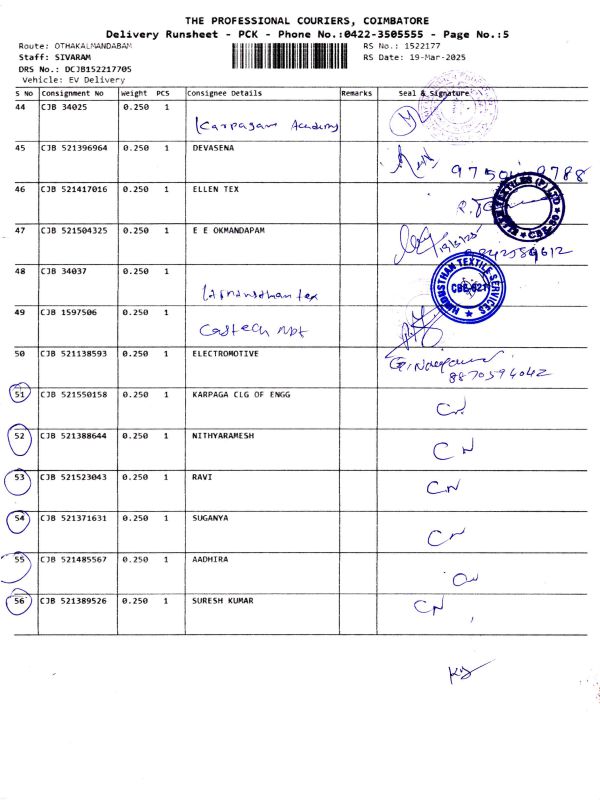 THE PROFESSIONAL COURIERS, COIMBATORE
Delivery Runsheet - PCK - Phone No.:0422-3505555 - Page No.:5
Route: OTHAKALMANDABAM RS No.: 1522177
Staff: SIVARAM RS Date: 19-Mar-2025
DRS No.: DCJB152217705
Vehicle: EV Delivery
S No Consignment No Weight PCS Consignee Details Remarks Seal & Signature
44 CJB 34025 0.250 1
Karpagam Academy
45 CJB 521396964 0.250 1 DEVASENA
46 CJB 521417016 0.250 1 ELLEN TEX
47 CJB 521504325 0.250 1 E E OKMANDAPAM
19/3/25
48 CJB 34037 0.250 1
HINDUSTHAN TEXTILE SERVICES
CBE-021
49 CJB 1597506 0.250 1
50 CJB 521138593 0.250 1 ELECTROMOTIVE
8870594042
51 CJB 521550158 0.250 1 KARPAGA CLG OF ENGG
CN
52 CJB 521388644 0.250 1 NITHYARAMESH
CN
53 CJB 521523043 0.250 1 RAVI
CN
54 CJB 521371631 0.250 1 SUGANYA
CN
55 CJB 521485567 0.250 1 AADHIRA
CN
56 CJB 521389526 0.250 1 SURESH KUMAR
CN